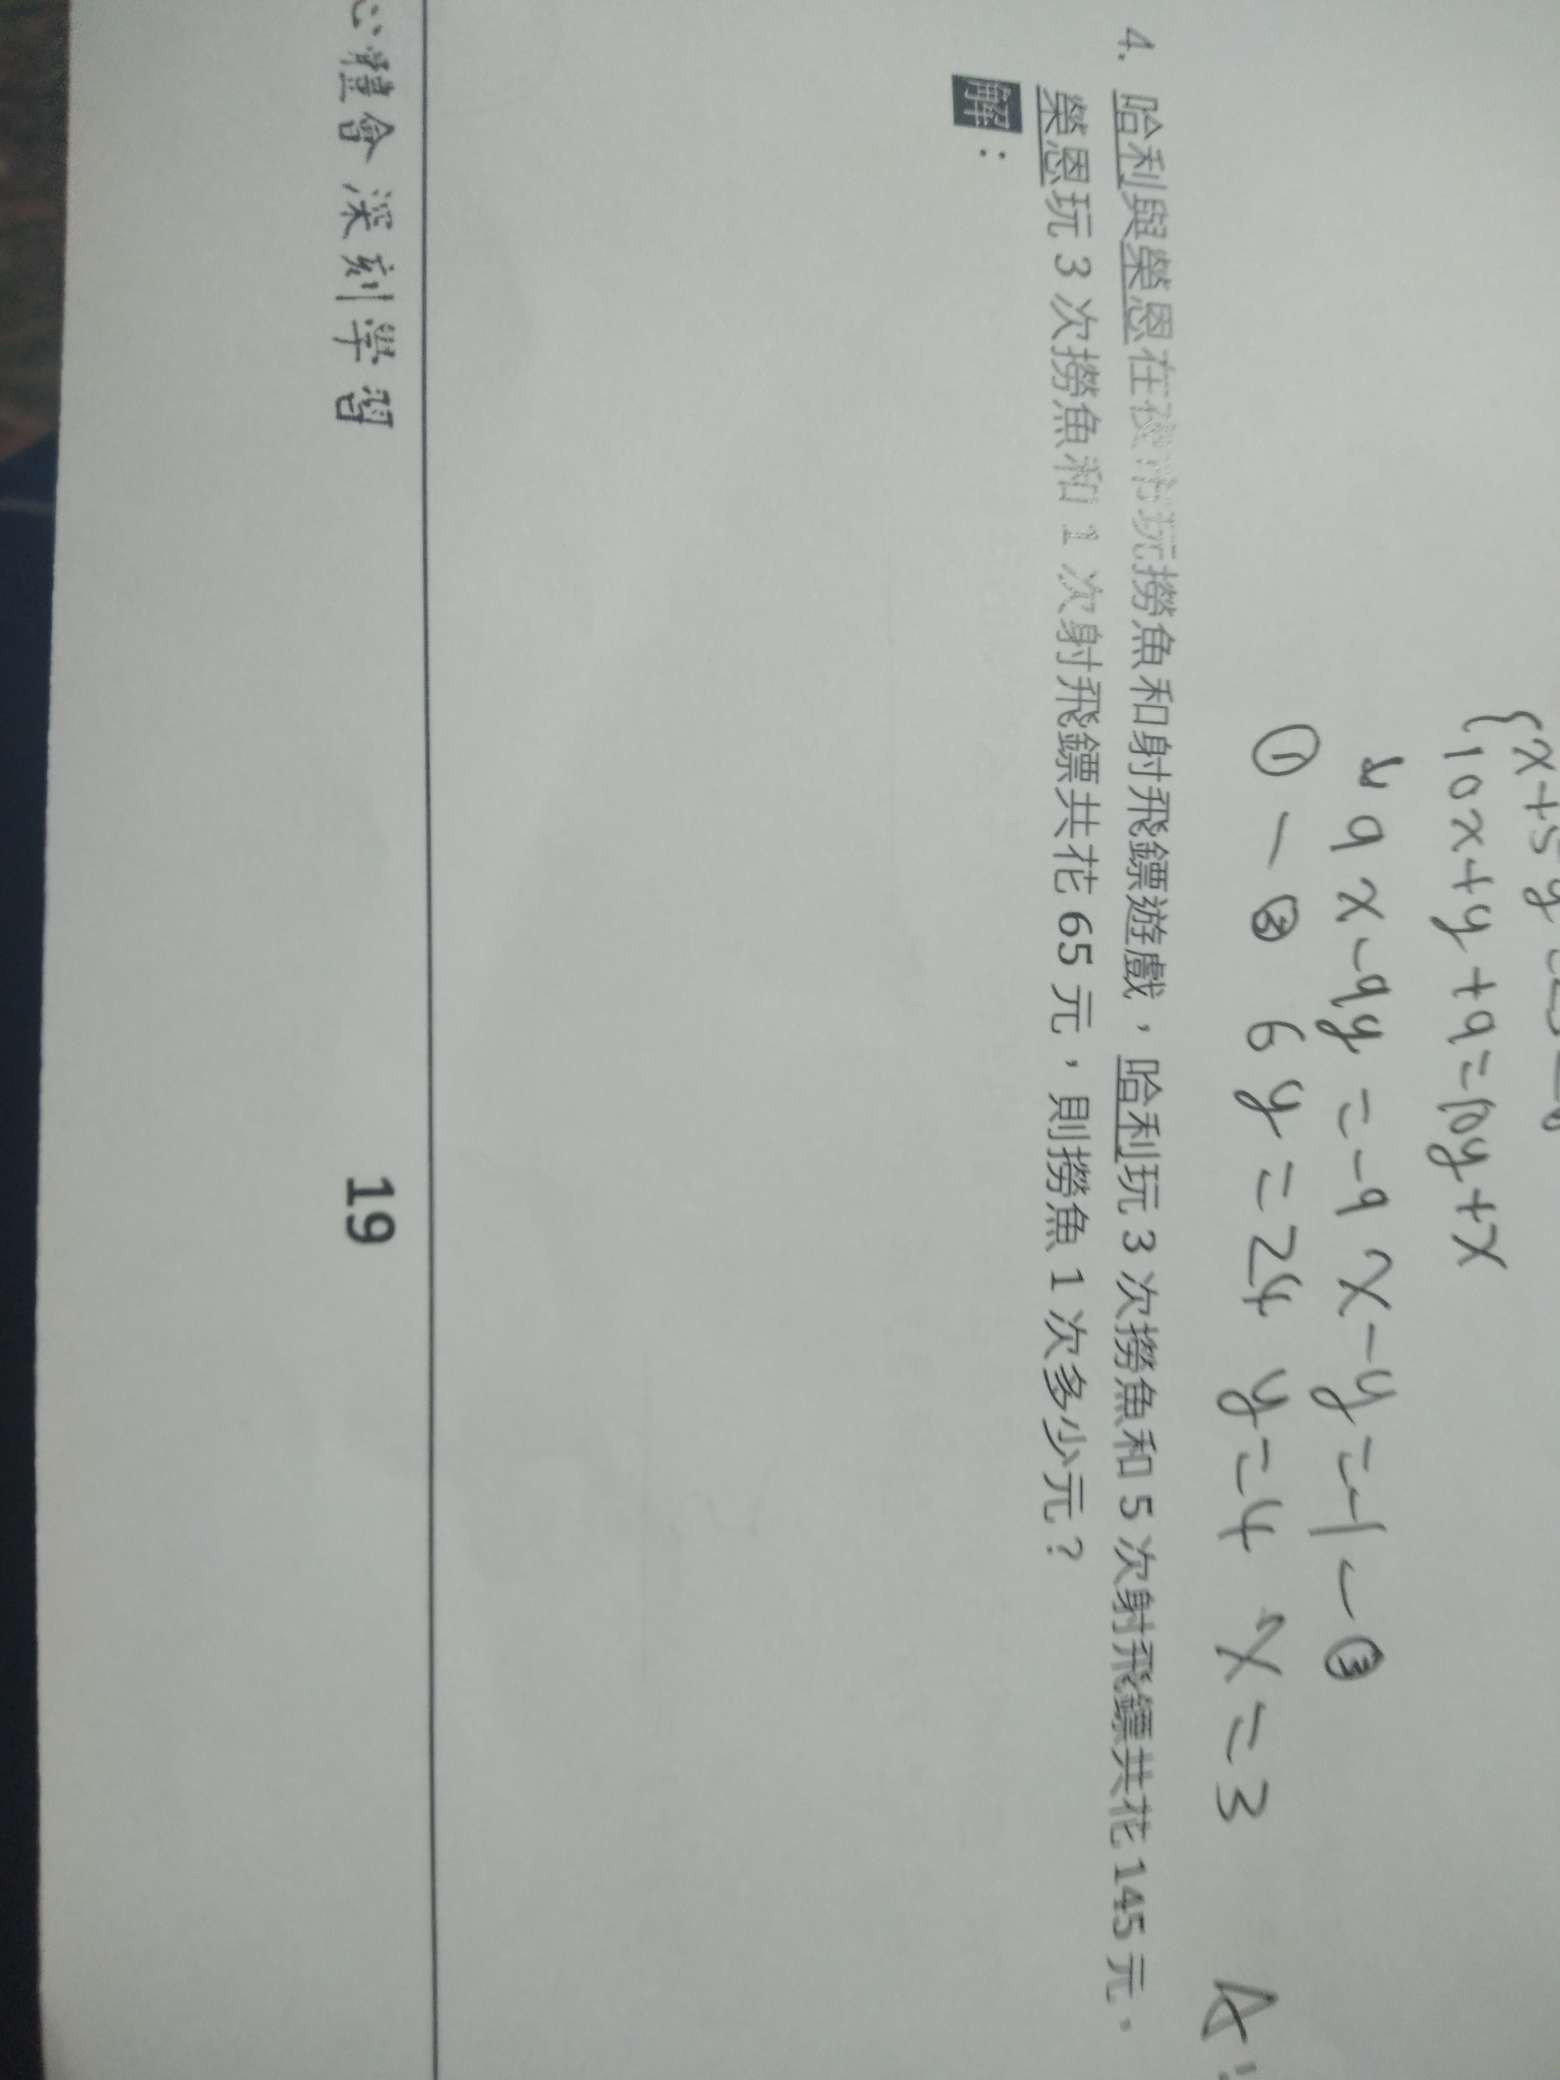 {x+5y
10x+y+9=10y+x
↓ 9x-9y=-9 x-y=-1 - ③
① - ③ 6y=24 y=4 x=3 A:
4. 哈利與榮恩在夜市玩撈魚和射飛鏢遊戲，哈利玩 3 次撈魚和 5 次射飛鏢共花 145 元，
榮恩玩 3 次撈魚和 1 次射飛鏢共花 65 元，則撈魚 1 次多少元？
解：
心體會 深刻學習 19